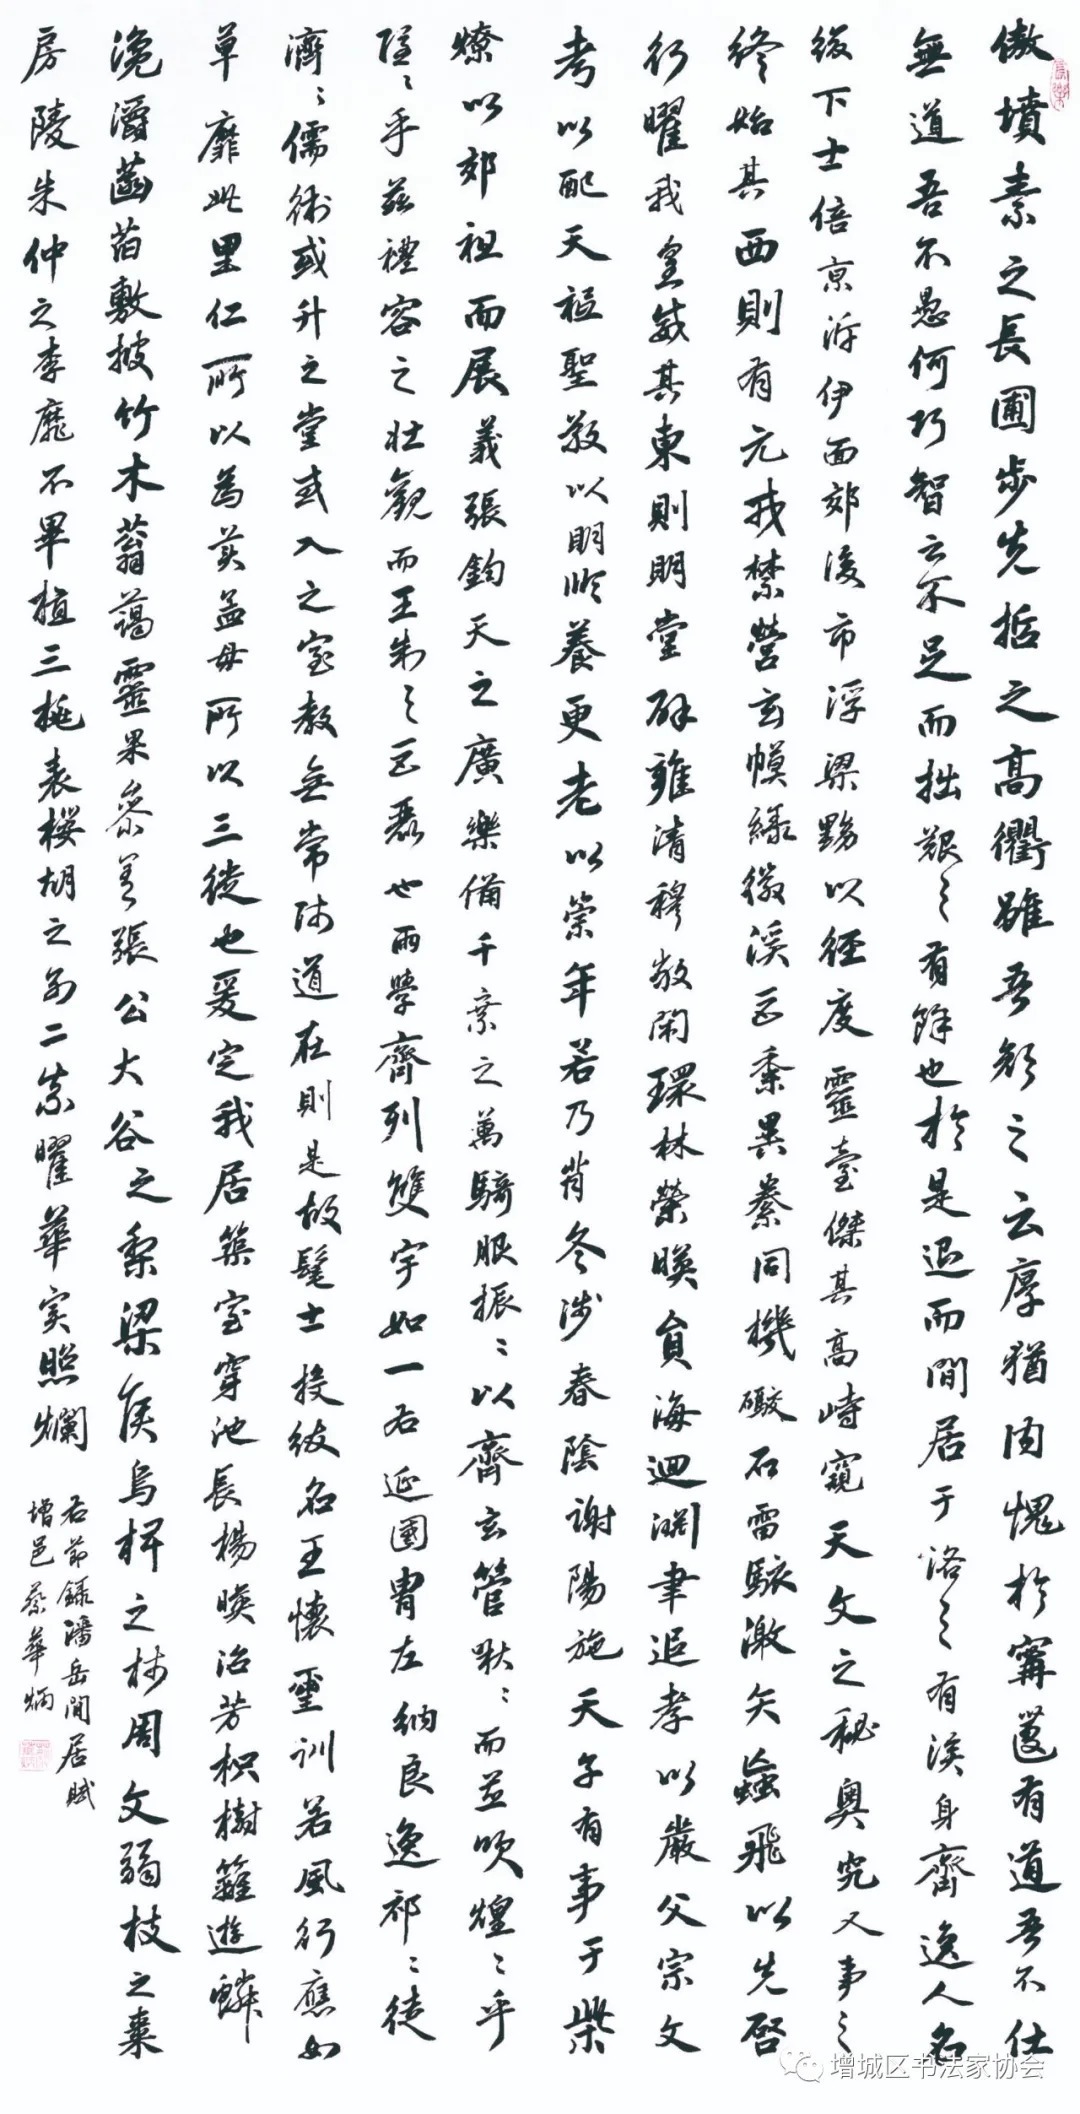 傲墳素之長圃步先哲之高衢雖吾顏之云厚猶内愧於甯蘧有道吾不仕
無道吾不愚何巧智之不足而拙艱之有餘也於是退而閒居于洛之有涘身齊逸人名
綴下士倍京泝伊面郊後市浮梁黝以徑度靈臺傑其高峙窺天文之秘奥究人事之
終始其西則有元戎禁營玄幙綠徽溪巨黍異絭同機礮石雷駭激矢蝱飛以先啓
行曜我皇威其東則明堂辟雍清穆敞閑環林縈暎員海迴淵聿追孝以嚴父宗文
考以配天祗聖敬以明順養更老以崇年若乃背冬涉春陰謝陽施天子有事于柴
燎以郊祖而展義張鈞天之廣樂備千乘之萬騎服振〻以齊玄管啾〻而並吹煌〻乎
隱〻乎茲禮容之壯觀而王制之巨麗也兩學齊列雙宇如一右延國胄左納良逸祁〻徒
濟〻儒術或升之堂或入之室教無常師道在則是故髦士投紱名王懷璽訓若風行應如
草靡此里仁所以為美孟母所以三徙也爰定我居築室穿池長楊暎沼芳枳樹籬遊鱗
瀺灂菡萏敷披竹木蓊藹靈果參差張公大谷之梨梁侯烏椑之柿周文弱枝之棗
房陵朱仲之李靡不畢植三桃表櫻胡之别二柰曜華實照爛
右節錄潘岳閒居賦
增邑蔡華炳
增城区书法家协会